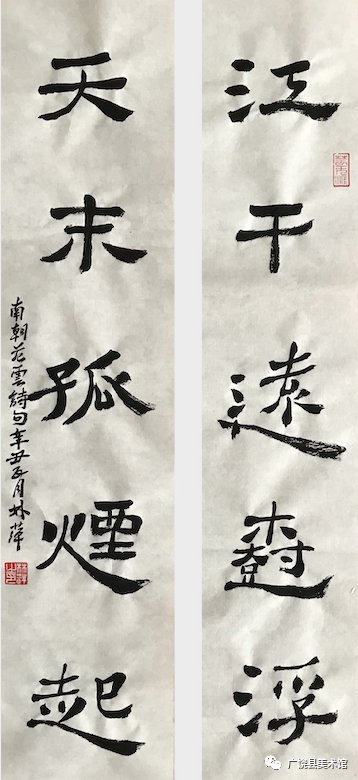 江干遠樹浮
天末孤煙起
南朝范雲詩句辛丑正月林萍
广饶县美术馆